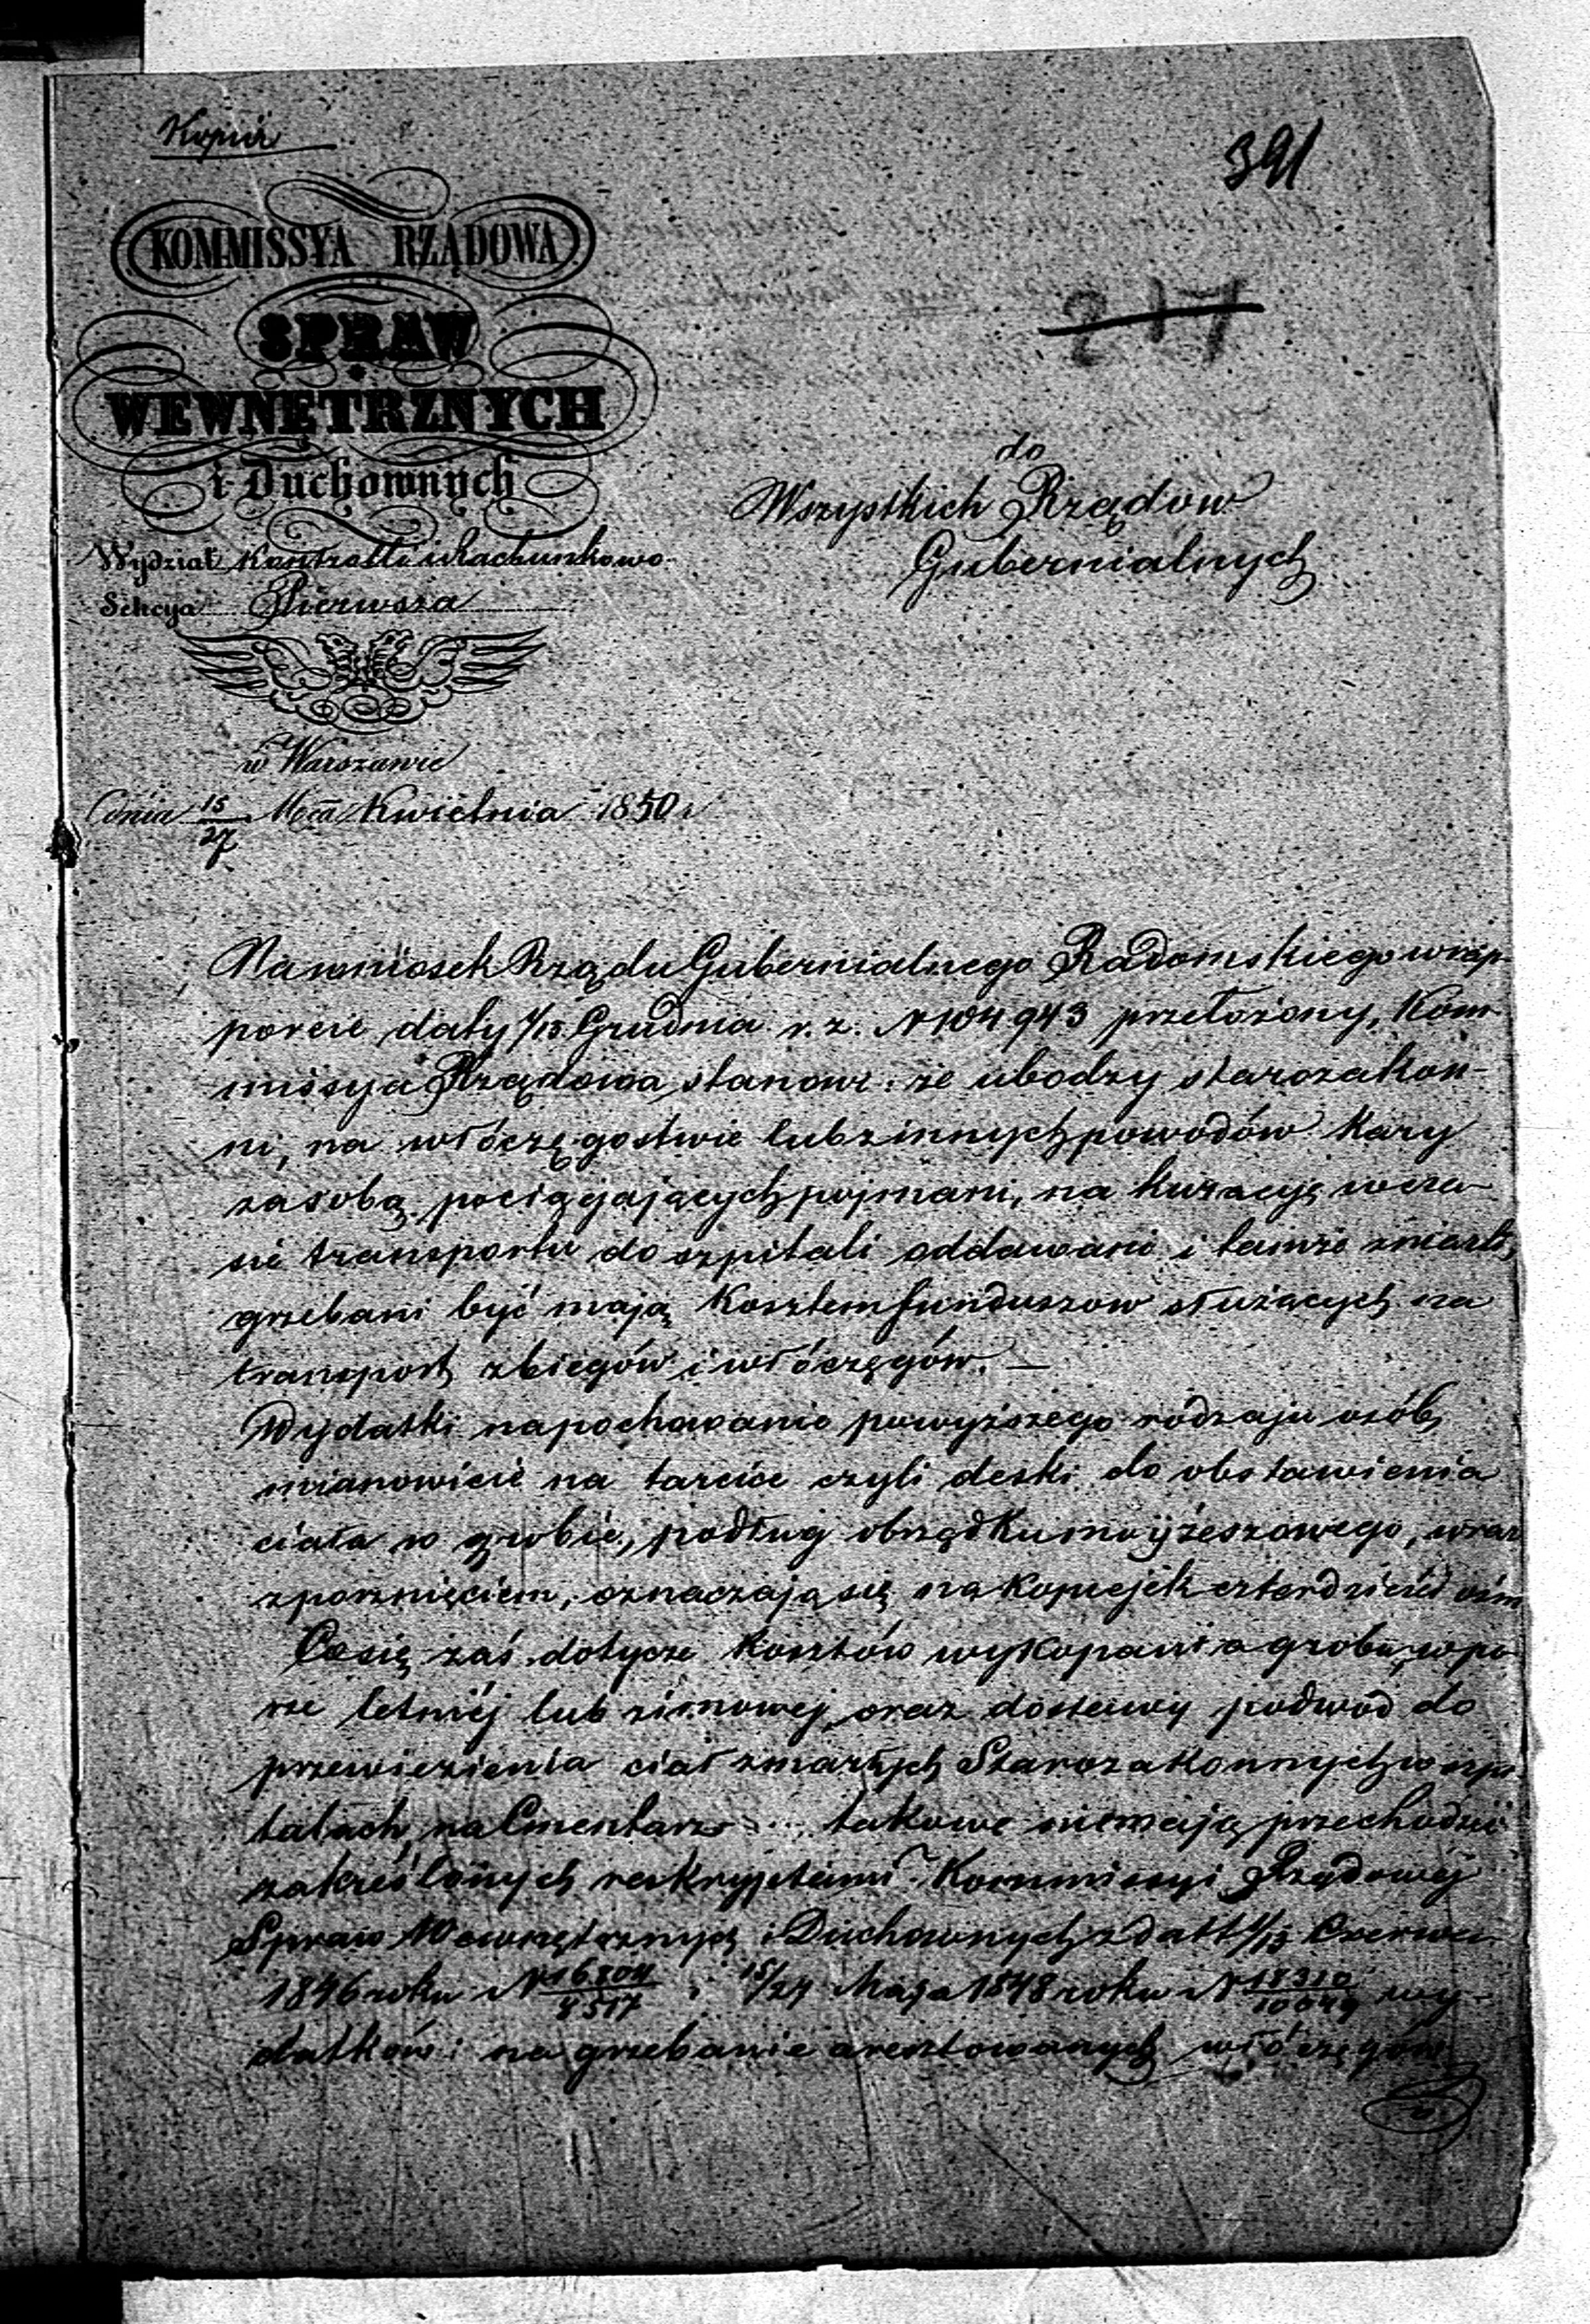 Kopia
391
217
KOMMISSYA RZĄDOWA
SPRAW
WEWNĘTRZNYCH
i Duchownych
Wydział Kontrolli i Rachunkowo.
Sekcya Pierwsza
do
Wszystkich Rządow
Gubernialnych
w Warszawie
dnia 15/27 Mca Kwietnia 1850 r
Na wniosek Rządu Gubernialnego Radomskiego w rap-
porcie daty 1/13 Grudnia r. z. N 104943 przełożony, Kom-
missya Rządowa stanowi: że ubodzy starozakon-
ni, na włóczęgostwie lub z innych powodów kary
za sobą pociągających pojmani, na kuracyę w cza-
sie transportu do szpitali oddawani i tamże zmarli,
grzebani być mają kosztem funduszow służących na
transport zbiegów i włóczęgów. —
Wydatki na pochowanie powyższego rodzaju osób,
mianowicie na tarcice czyli deski do obstawienia
ciała w grobie, podług obrządku mojżeszowego, wraz
z porznięciem, oznaczają się na kopiejek czterdzieści ośm
Co się zaś dotycze kosztów wykopania grobu, w po-
rze letniéj lub zimowej, oraz dostawy podwód do
przewiezienia ciał zmarłych Starozakonnych w szpi-
talach, na Cmentarz takowe niemają przechodzić
zakreślonych reskryptami Kommissyi Rządowéj
Spraw Wewnętrznych i Duchownych z datt 1/13 Czerwca
1846 roku N 16804/8517 i 15/27 Maja 1848 roku N 18310/10049 wy-
datków: na grzebanie aresztowanych włóczęgów